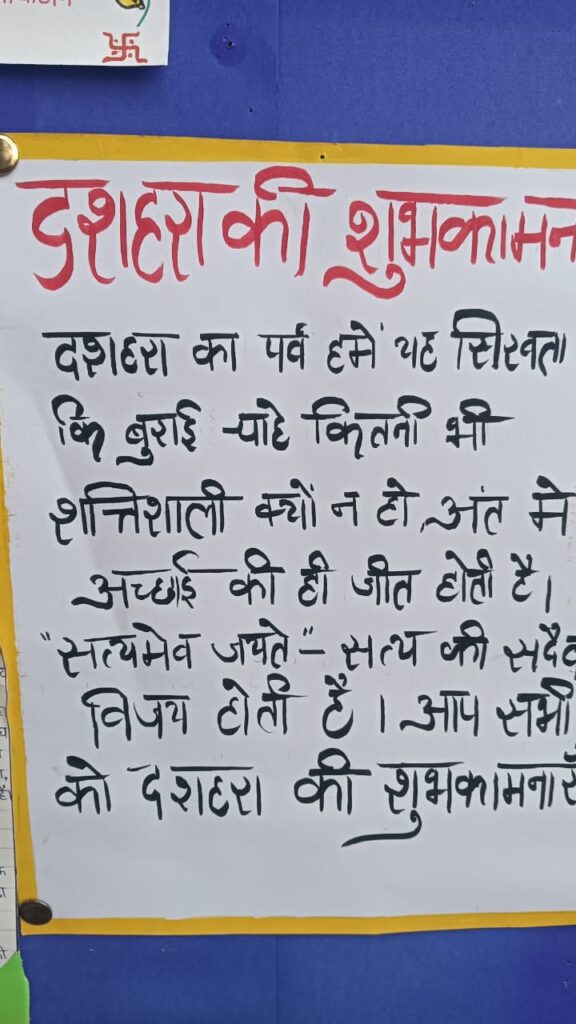 दशहरा की शुभकामन
दशहरा का पर्व हमें यह सिखता
कि बुराई चाहे कितनी भी
शक्तिशाली क्यों न हो, अंत मे
अच्छाई की ही जीत होती है।
"सत्यमेव जयते" - सत्य की सदैव
विजय होती है । आप सभी
को दशहरा की शुभकामनाएँ